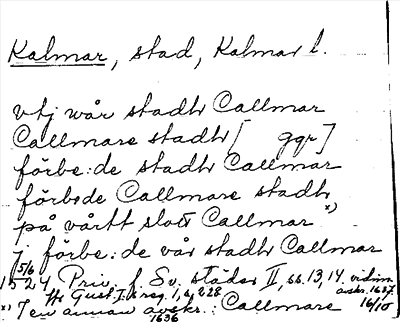 Kalmar, stad, Kalmar l.
vtj wår stadh Callmar
Callmare stadh [ ggr ]
förbe:de stadh Callmar
förbede Callmare stadh
på vårtt slott Callmar x)
j förbe:de vår stadh Callmar
5/6 1524, Priv. f. Sv. städer II, ss. 13, 14. vidim. avskr. 1637
Gust. I:s reg. 1, s. 228
x) I en annan avskr.: Callmare 16/10
1636